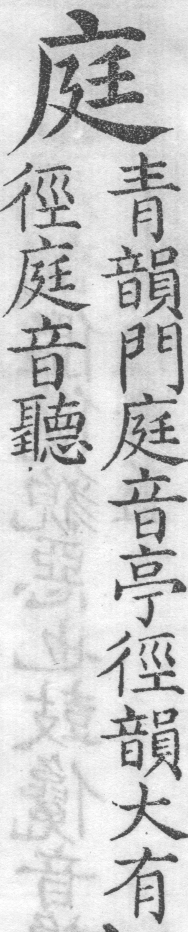 庭
青韻門庭音亭徑韻大有
徑庭音聽